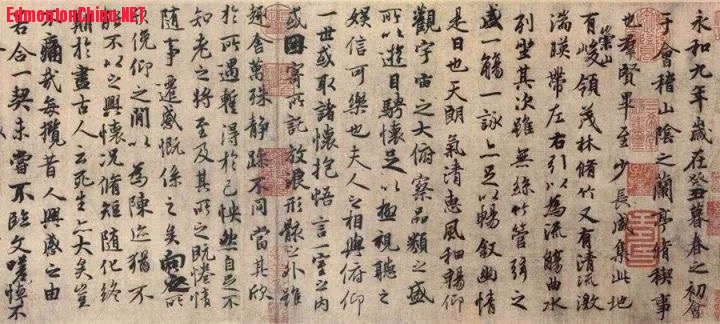 EdmontonChina.NET
永和九年歲在癸丑暮春之初會
于會稽山陰之蘭亭脩稧事
也羣賢畢至少長咸集此地
有崇山峻領茂林脩竹又有清流激
湍暎帶左右引以為流觴曲水
列坐其次雖無絲竹管弦之
盛一觴一詠亦足以暢叙幽情
是日也天朗氣清惠風和暢仰
觀宇宙之大俯察品類之盛
所以遊目騁懷足以極視聽之
娛信可樂也夫人之相與俯仰
一世或取諸懷抱悟言一室之內
或因寄所託放浪形骸之外雖
趣舍萬殊靜躁不同當其欣
於所遇暫得於己怏然自足不
知老之將至及其所之既惓情
隨事遷感慨係之矣向之所
欣俛仰之間以為陳迹猶不
能不以之興懷況脩短隨化終
期於盡古人云死生亦大矣豈
不痛哉每攬昔人興感之由
若合一契未嘗不臨文嗟悼不